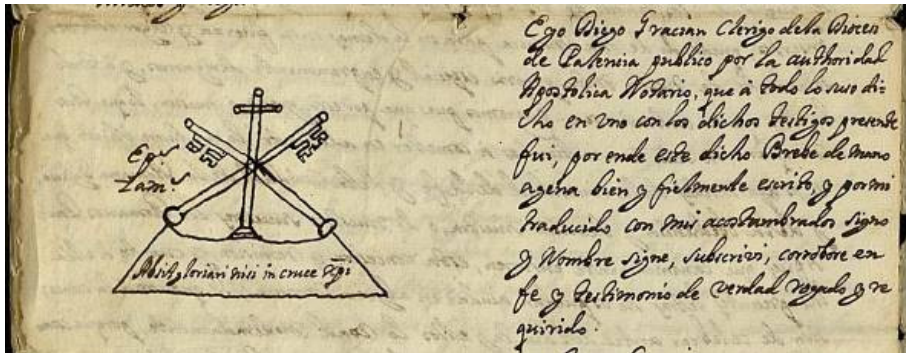 Epūs
Zamūs
Absit, gloriari nisi in cruce xp̄i
Ego Diego Gracian Clerigo dela Dioces
de Palencia publico por la authoridad
Apostolica Notario, que à todo lo suso di=
cho en vno con los dichos testigos presente
fui, por ende este dicho Brebe de mano
agena bien y fielmente escrito, y por mi
traducido con mis acostumbrados signo
y Nombre signe, subscrivi, corrobore en
fe y testimonio de verdad rogado y re
querido.